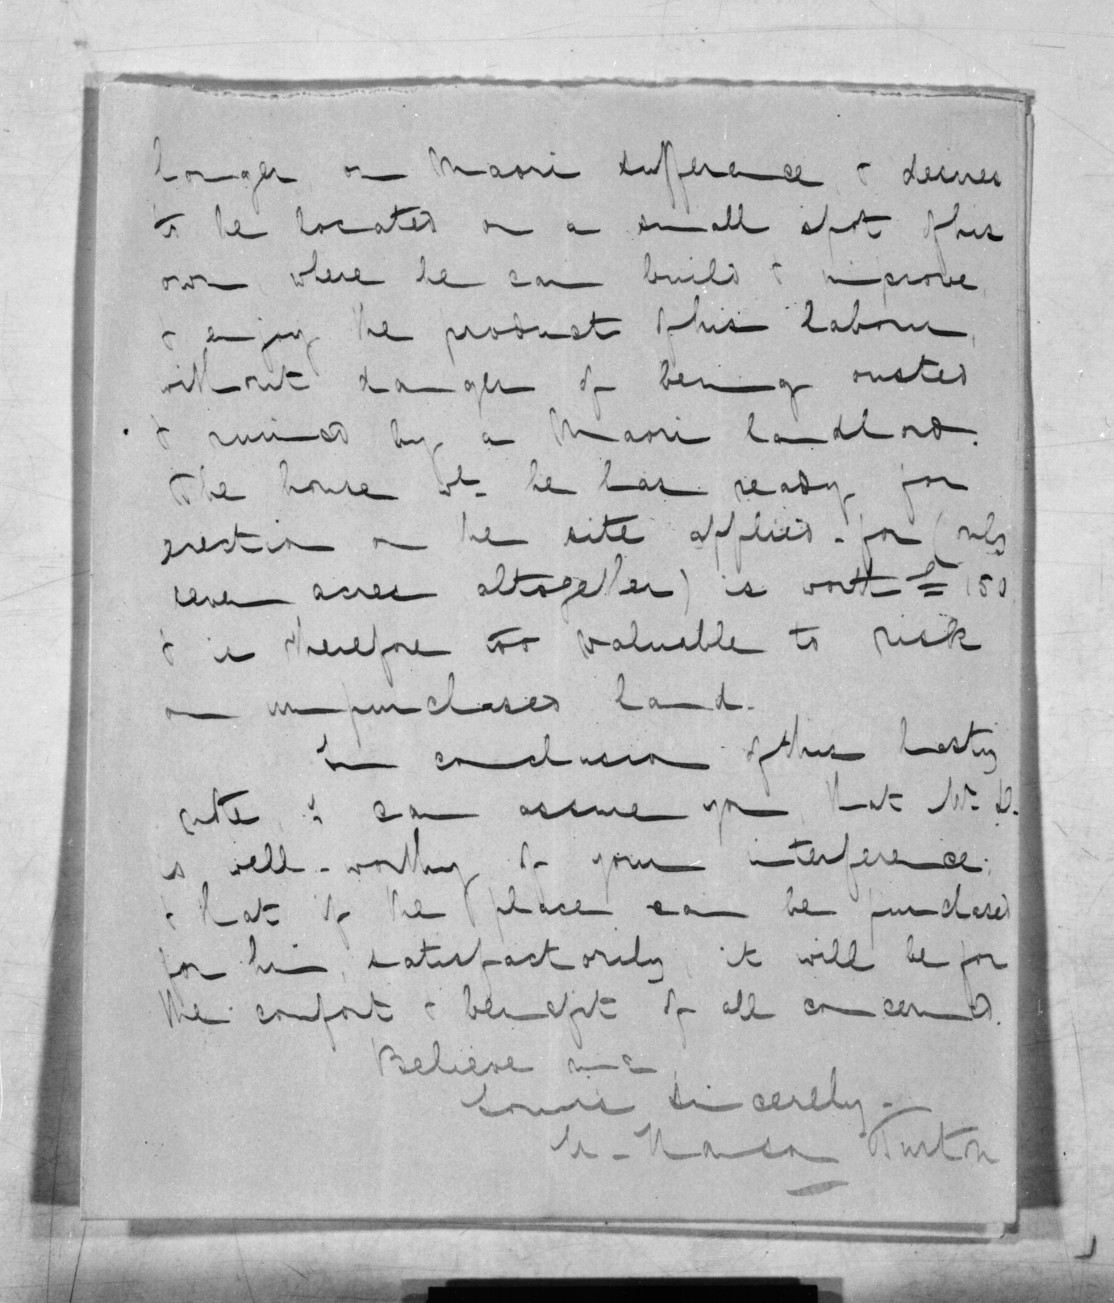 longer on Maori sufferance & desires
to be located on a small spot of his
own where he can build & improve,
& enjoy the product of his labour,
without danger of being ousted
& ruined by a Maori landlord.
The house wh. he has ready for
erection on the site applied-for (only
seven acres altogether) is worth £150
& is therefore too valuable to risk
on unpurchased land.
In conclusion of this hasty
note, I can assure you that Mr.
is well-worthy of your interference;
& that if the place can be purchased
for him satisfactorily, it will be for
the comfort & benefit of all concerned.
Believe me
Yours sincerely.
H. Hanson Turton